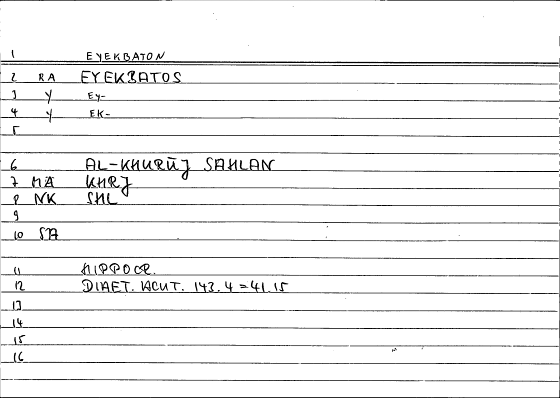 1 EYEKBATON
2 RA EYEKBATOS
3 Y EY-
4 Y EK-
5
6 AL-KHURŪJ SAHLAN
7 MA KHRJ
8 NK SHL
9
10 SA
11 HIPPOCR.
12 DIAET. ACUT. 143.4=41.15
13
14
15
16